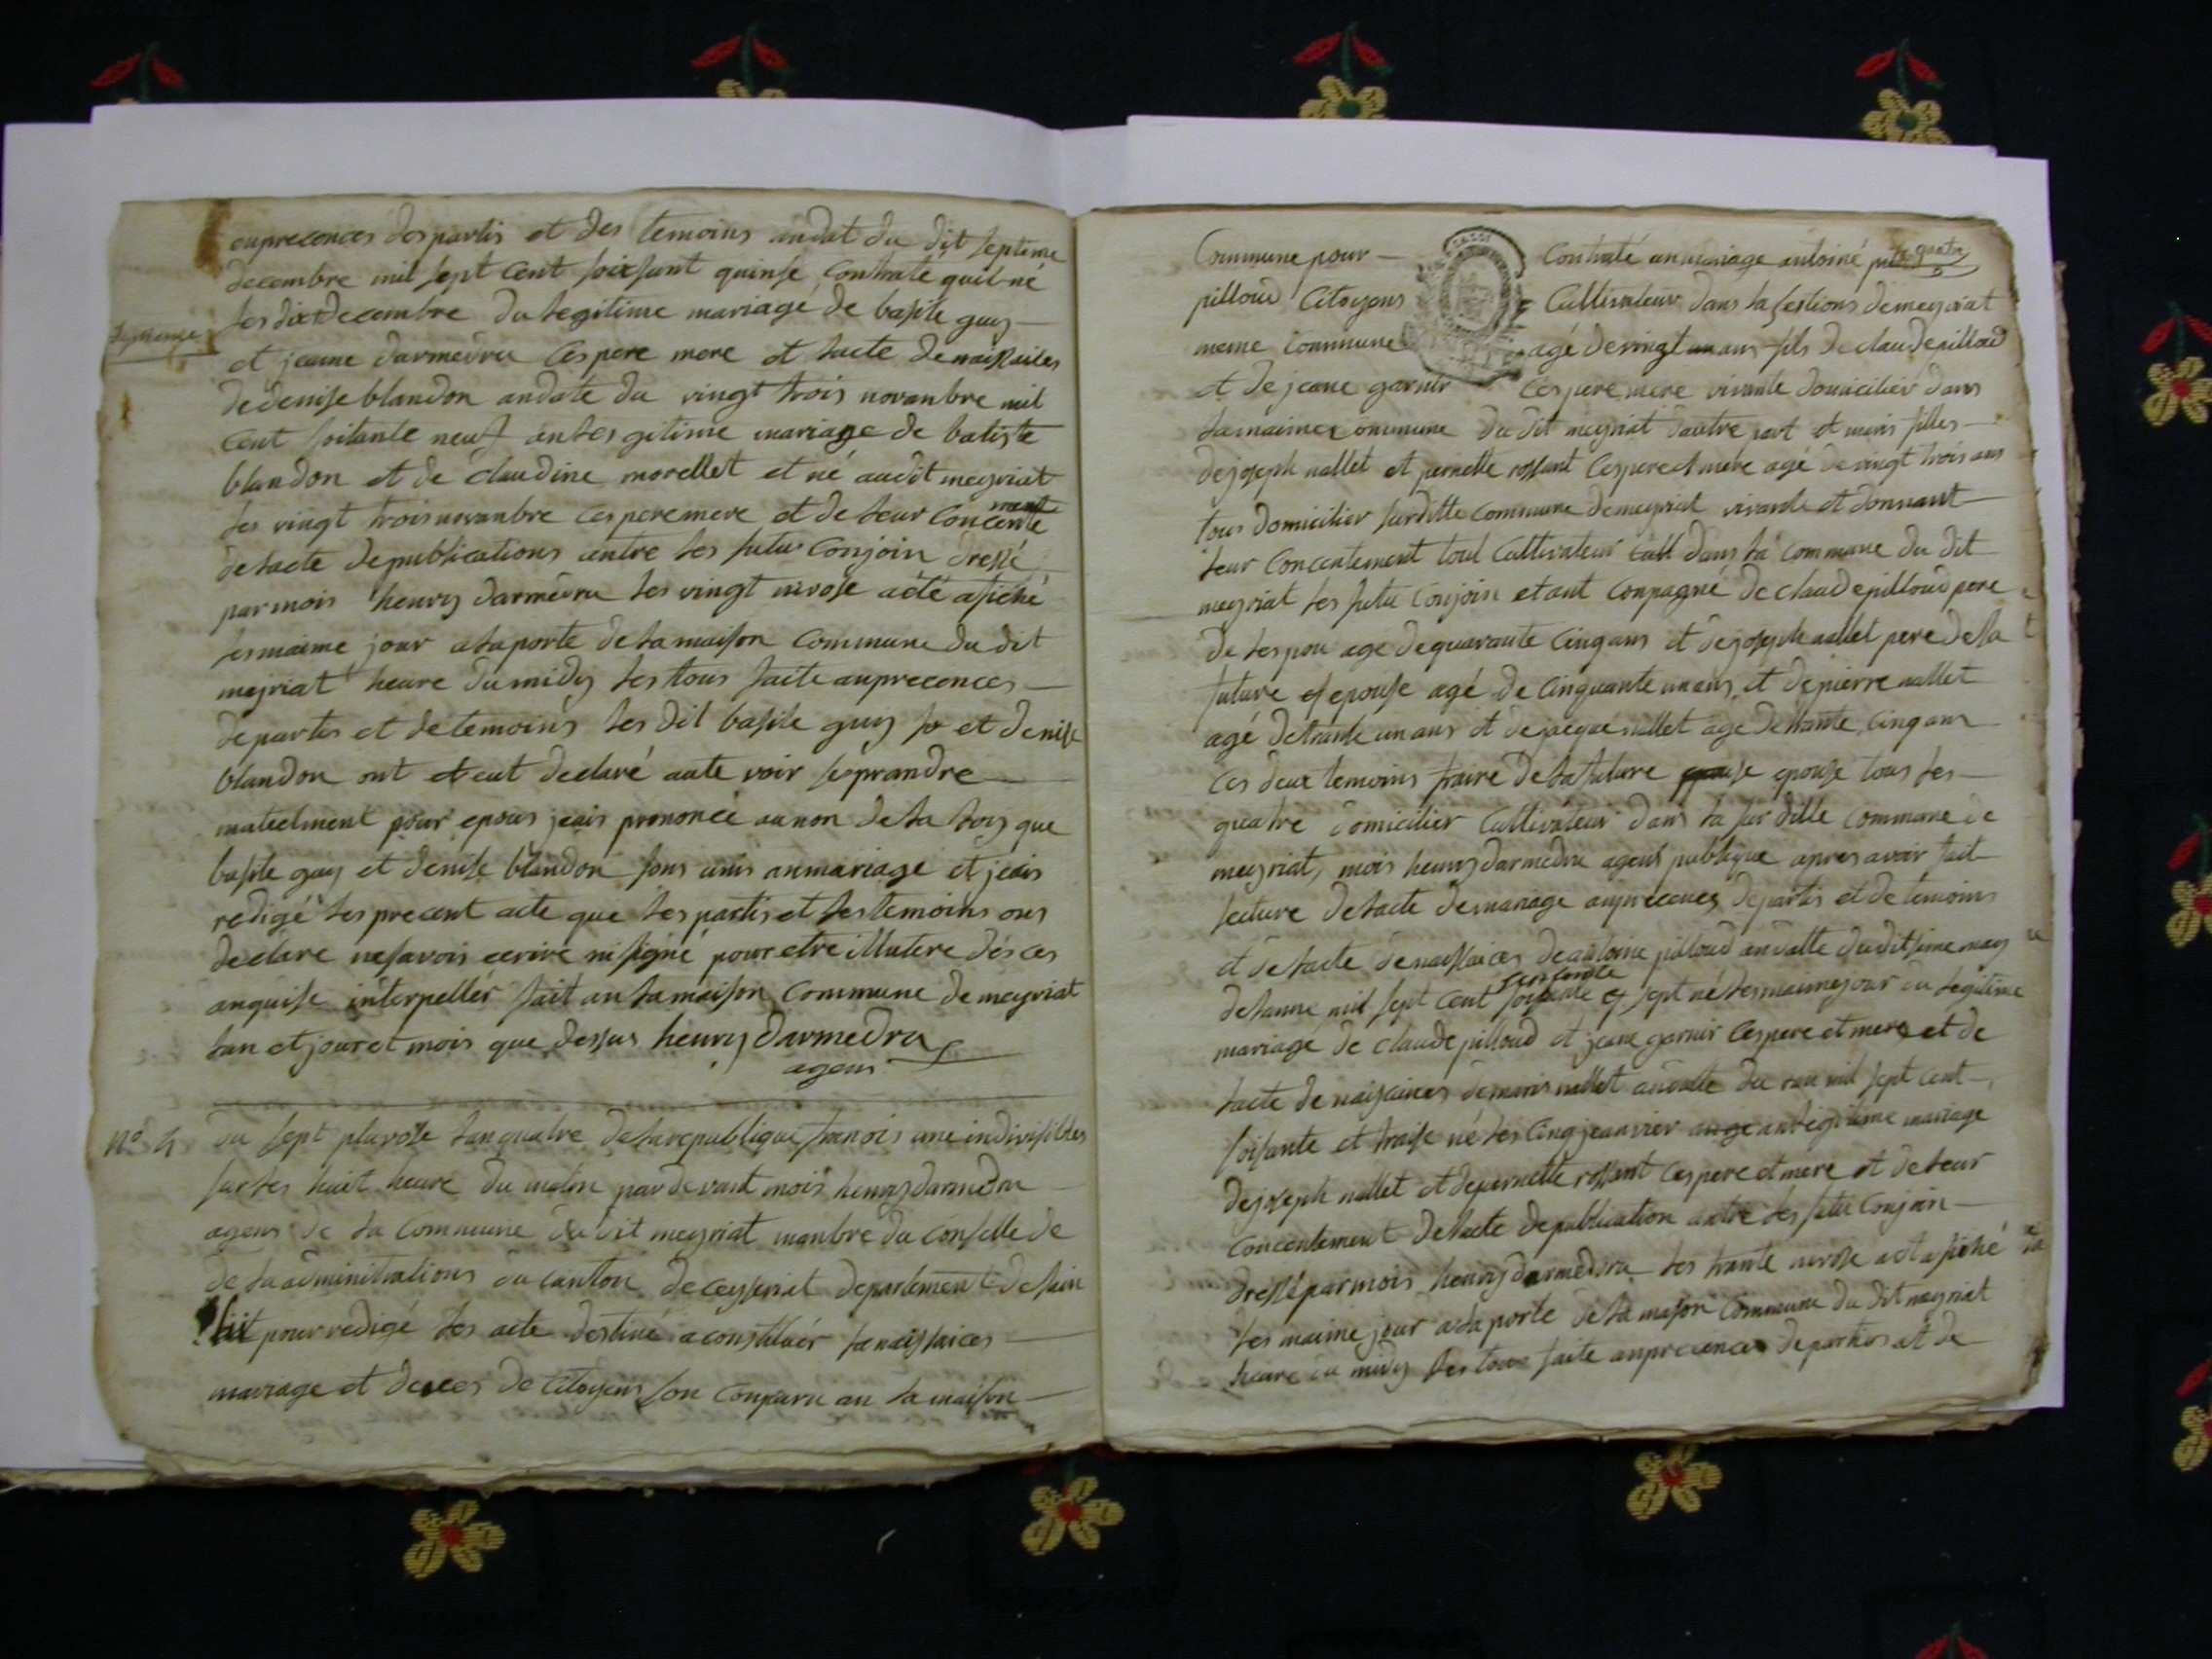 auprecences des partis et des temoins andat du dit septieme
decembre mil sept cent soixsant quinse contraté quil né
les dix decembre du legitime mariage de basile guy
et jeanne darmedru ces pere mere et lacte de naissaites
de denise blandon andate du vingt trois novanbre mil
cent soitante neuf an les gitime mariage de batiste
blandon et de claudine morellet et né audit meyriat
les vingt trois novanbre ces pere mere et de leur concente
ment
de lacte de publications antre les futur conjoin dressé
par mois henry darmedru les vingt nivose a été afiché
les maime jour a la porte de la maison commune du dit
mejriat heure du midy les tous faite auprecences
de partis et de temoins les dit basile guy et denise
blandon ont declaré aute voir se prandre
matuelment pour epous jeais prononcé aunon de la loy que
basile guy et denise blandon sons unis anmariage et jeais
redigé les precent acte que les partis et les temoins ons
declare ne savois ecrire ni signé pour etre illutere dés ces
anquise interpellér fait an la maison commune de meyriat
lan et jour et mois que dessus henry darmedru
agens
n° 4 du sept pluvose lan quatre de la republique franois une indivisibles
sur les huit heure du matin par devant mois henry darmedru
agens de la commune du dit meyriat manbre du conselle de
de la administrations du canton de ceyseriat departement de lain
pour redigé les acte destiné a constituér la naissaices
mariage et deces de citoyens son conparu an la maison
Commune pour contraté an mariage antoine
quatre
pilloud citoyens cultivateur dans la sections de meyriat
meme commune agé de vingt un ans fils de claude pilloud
et de jeane garnir ces pere mere vivante domicilier dans
la maime commune du dit meyriat dautre part et maris filles
de joseph nallet et pernette rossant ces pere et mere agé de vingt trois ans
tous domicilier sur ditte commune de meyriat vivante et donnant
leur concentement tout cultivateur dans la commune du dit
meyriat les futu conjoin etant conpagné de claude pilloud pere
de lespou age de quarante cinq ans et de joseph nallet pere de la
future epouse agé de cinquante un ans et de pierre nallet
agé de trante un ans et de jacque nallet age de trante cinq ans
ces deux temoins fraire de la future epouse tous les
quatre domicilier cultivateur dans la sur ditte commune de
meyriat, mois henry darmedru agens publique apres avoir fait
lecture de lacte de mariage auprecences de partis et de temoins
et de lacte de naissaices de antoine pilloud andatte du
de lanne mil sept cent soisante et sept né les maime jour du legitime
mariage de claude pilloud et jeane garnir ces pere et mere et de
lacte de naissaices de maris nallet andatte du mil sept cent
soisante et traise né les cinq jeanvier an legitime mariage
de joseph nallet et de pernette rossant ces pere et mere et de leur
concentement de lacte de publication antre les futu conjoin
dressé par mois henry darmedru les trante nivose a et afiché
les maime jour a la porte de la maison commune du dit meyriat
heure du midy les tous faite auprecences de partis et de